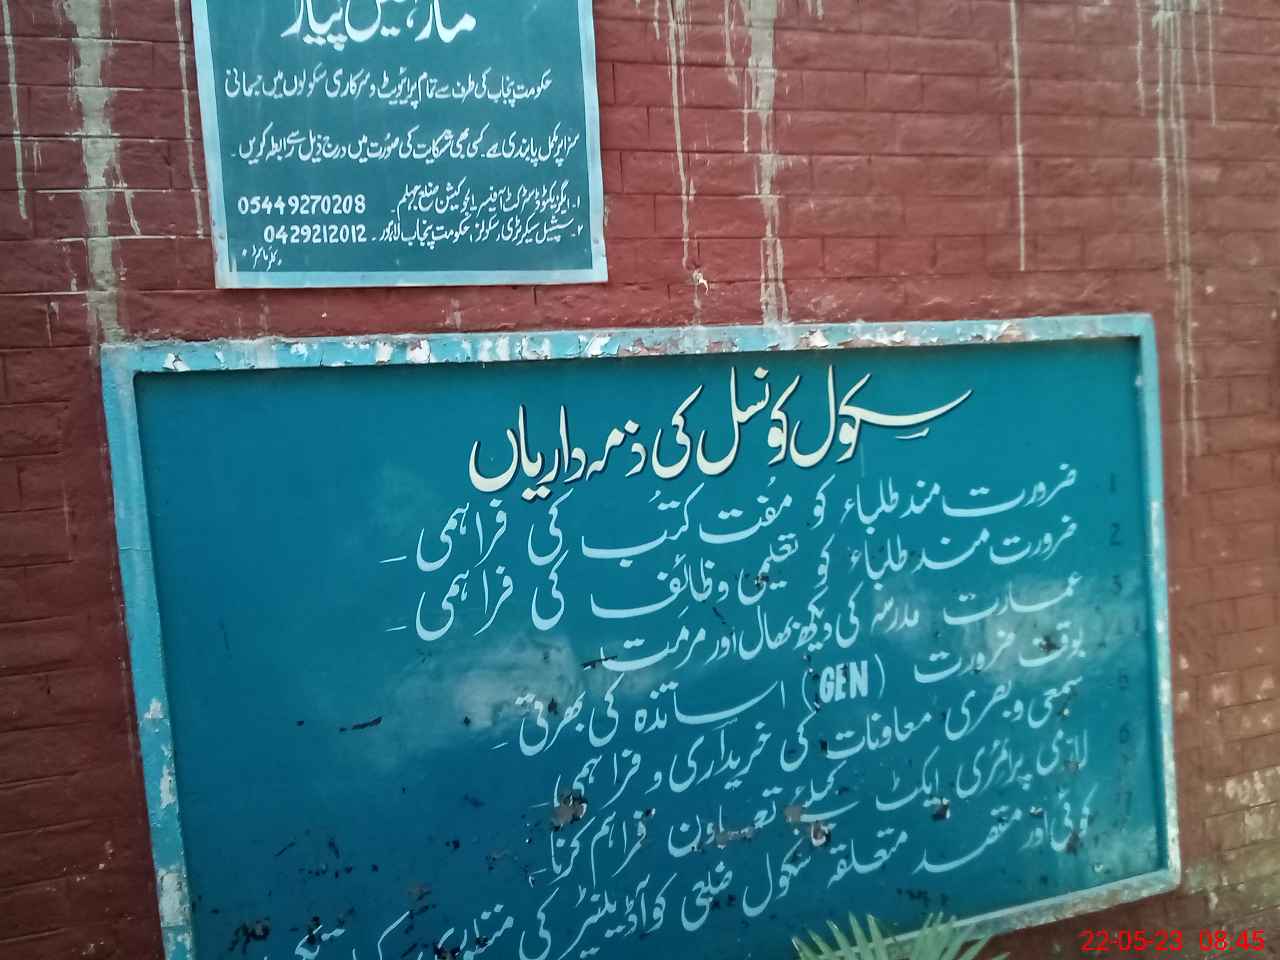 مار نہیں پیار
حکومت پنجاب کی طرف سے تمام پرائیویٹ و سرکاری سکولوں میں جسمانی
سزا پر مکمل پابندی ہے۔ کسی بھی شکایت کی صورت میں درج ذیل سے رابطہ کریں۔
۱۔ ایگزیکٹو ڈسٹرکٹ آفیسر ایجوکیشن ضلع جہلم۔ 05449270208
۲۔ سپیشل سیکرٹری سکولز، حکومت پنجاب لاہور۔ 0429212012
سکول کونسل کی ذمہ داریاں
1 ضرورت مند طلباء کو مُفت کتب کی فراہمی۔
2 ضرورت مند طلباء کو تعلیمی وظائف کی فراہمی۔
3 عمارت مدرسہ کی دیکھ بھال اور مرمت۔
بوقت ضرورت (GEN) اساتذہ کی بھرتی۔
5 سمعی و بصری معاونات کی خریداری و فراہمی۔
6 لازمی پرائمری ایکٹ کیلئے تعاون فراہم کرنا۔
کوئی اور مقصد متعلقہ سکول ضلعی کوآرڈینیٹر کی منظوری
22-05-23 08:45